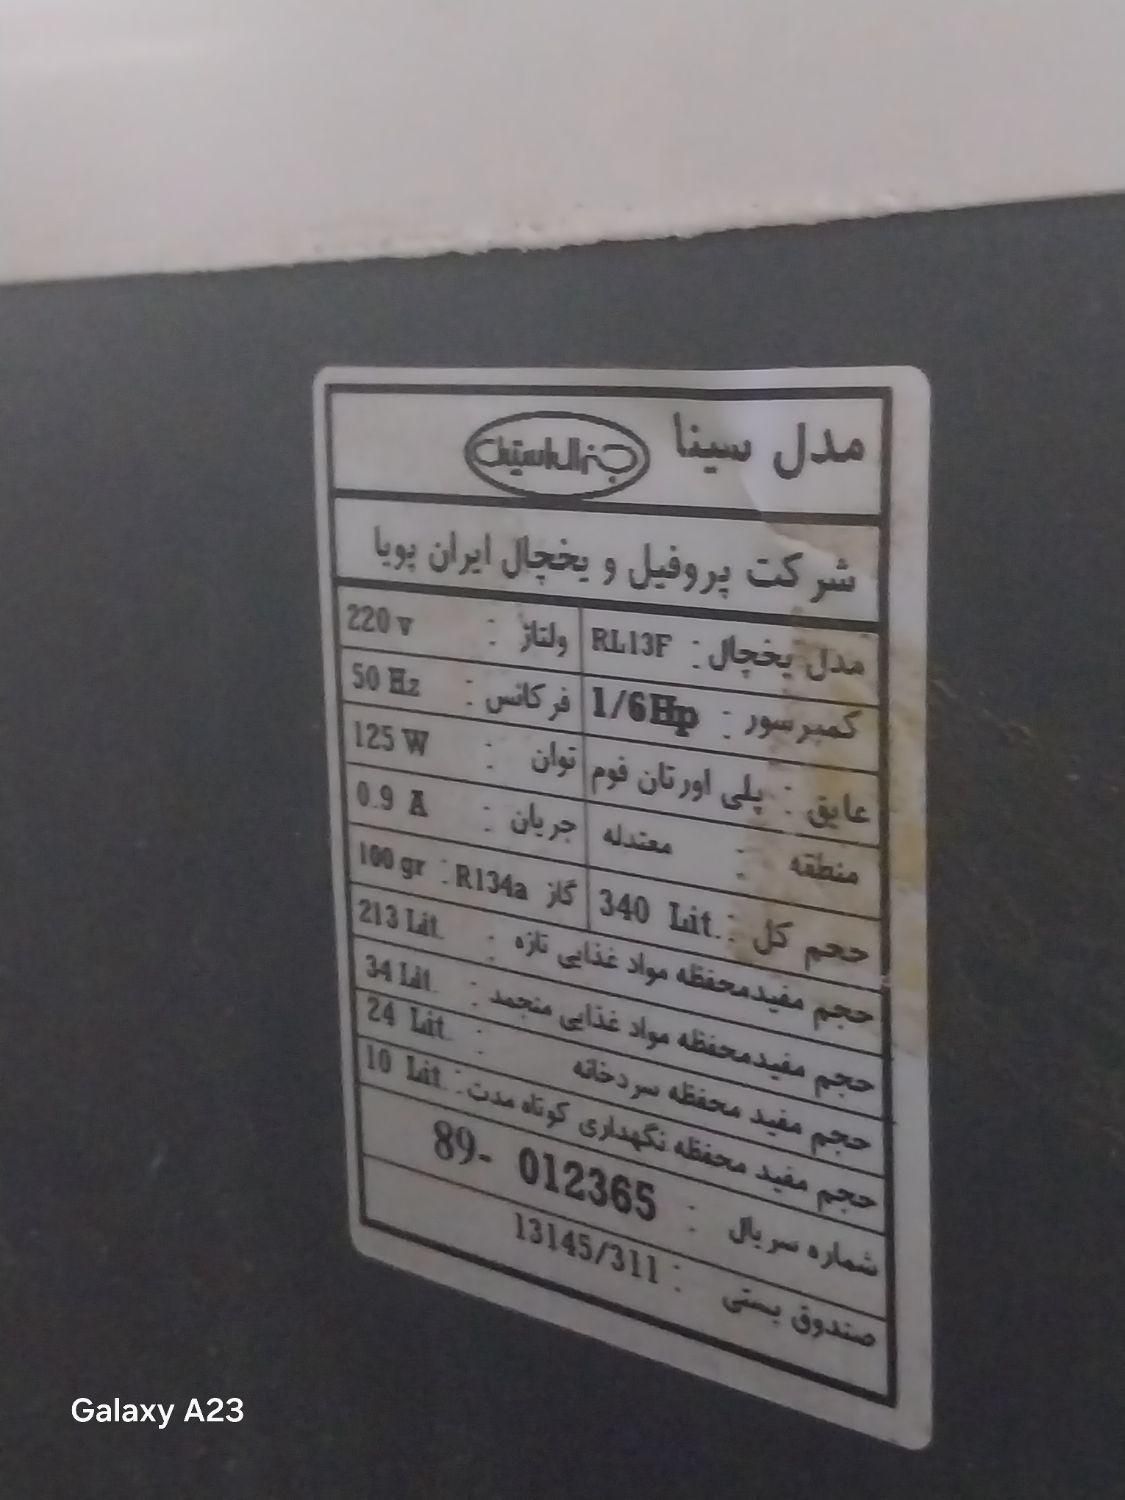 مدل سینا جنرال استیل
شرکت پروفیل و یخچال ایران پویا
مدل یخچال : RL13F ولتاژ : 220 v
کمپرسور : 1/6Hp فرکانس : 50 Hz
عایق : پلی اورتان فوم توان : 125 W
منطقه : معتدله جریان : 0.9 A
حجم کل : 340 Lit. گاز R134a : 100 gr
حجم مفیدمحفظه مواد غذایی تازه : 213 Lit.
حجم مفیدمحفظه مواد غذایی منجمد : 34 Lit.
حجم مفید محفظه سردخانه : 24 Lit.
حجم مفید محفظه نگهداری کوتاه مدت : 10 Lit.
شماره سریال : 89- 012365
صندوق پستی : 13145/311
Galaxy A23